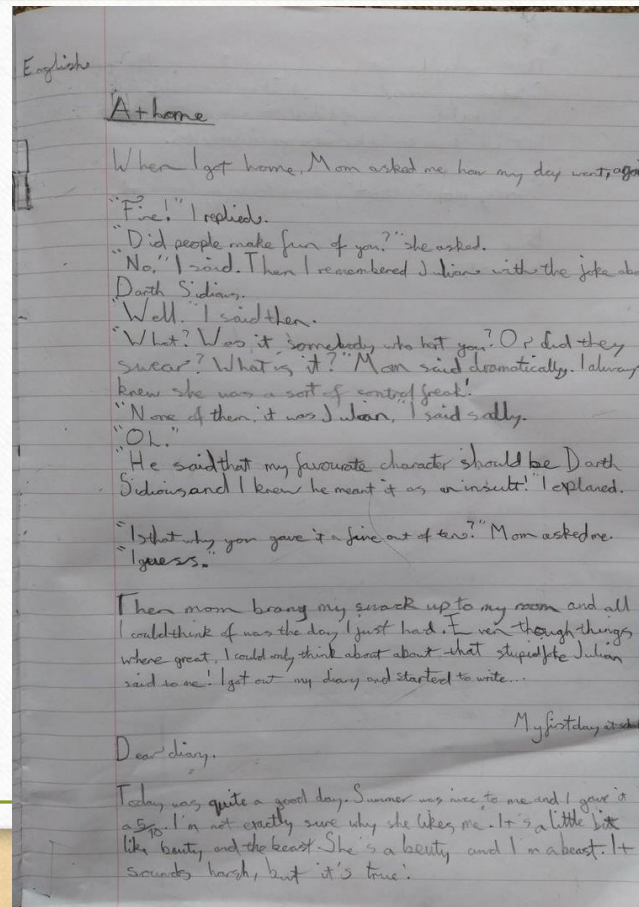 English
At home
When I got home, Mom asked me how my day went, again
"Five!" I replied.
"Did people make fun of you?" she asked.
"No." I said. Then I remembered Julian with the joke abo
Darth Sidious.
"Well." I said then.
"What? Was it somebody who hort you? Or did they
swear? What is it?" Mom said dramatically. I alway
knew she was a sort of control freak!
"None of them, it was Julian," I said sadly.
"Oh."
"He said that my favourate character should be Darth
Sidious, and I knew he meant it as an insult!" I explaned.
"Is that why you gave it a five out of ten?" Mom asked me.
"I guess."
Then mom brang my snack up to my room and all
I could think of was the day I just had. Even though things
where great, I could only think about about that stupid joke Julian
said to me! I got out my diary and started to write...
My first day at school
Dear diary.
Today was quite a good day. Summer was nice to me and I gave it
a 5/10. I'm not exactly sure why she likes me. It's a little bit
like beuty and the beast. She's a beuty and I'm a beast. It
sounds harsh, but it's true!